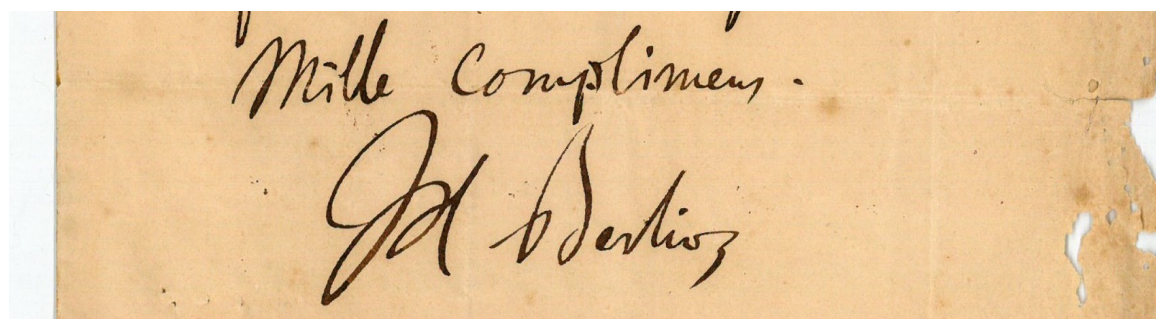 Mille Complimens.
H Berlioz